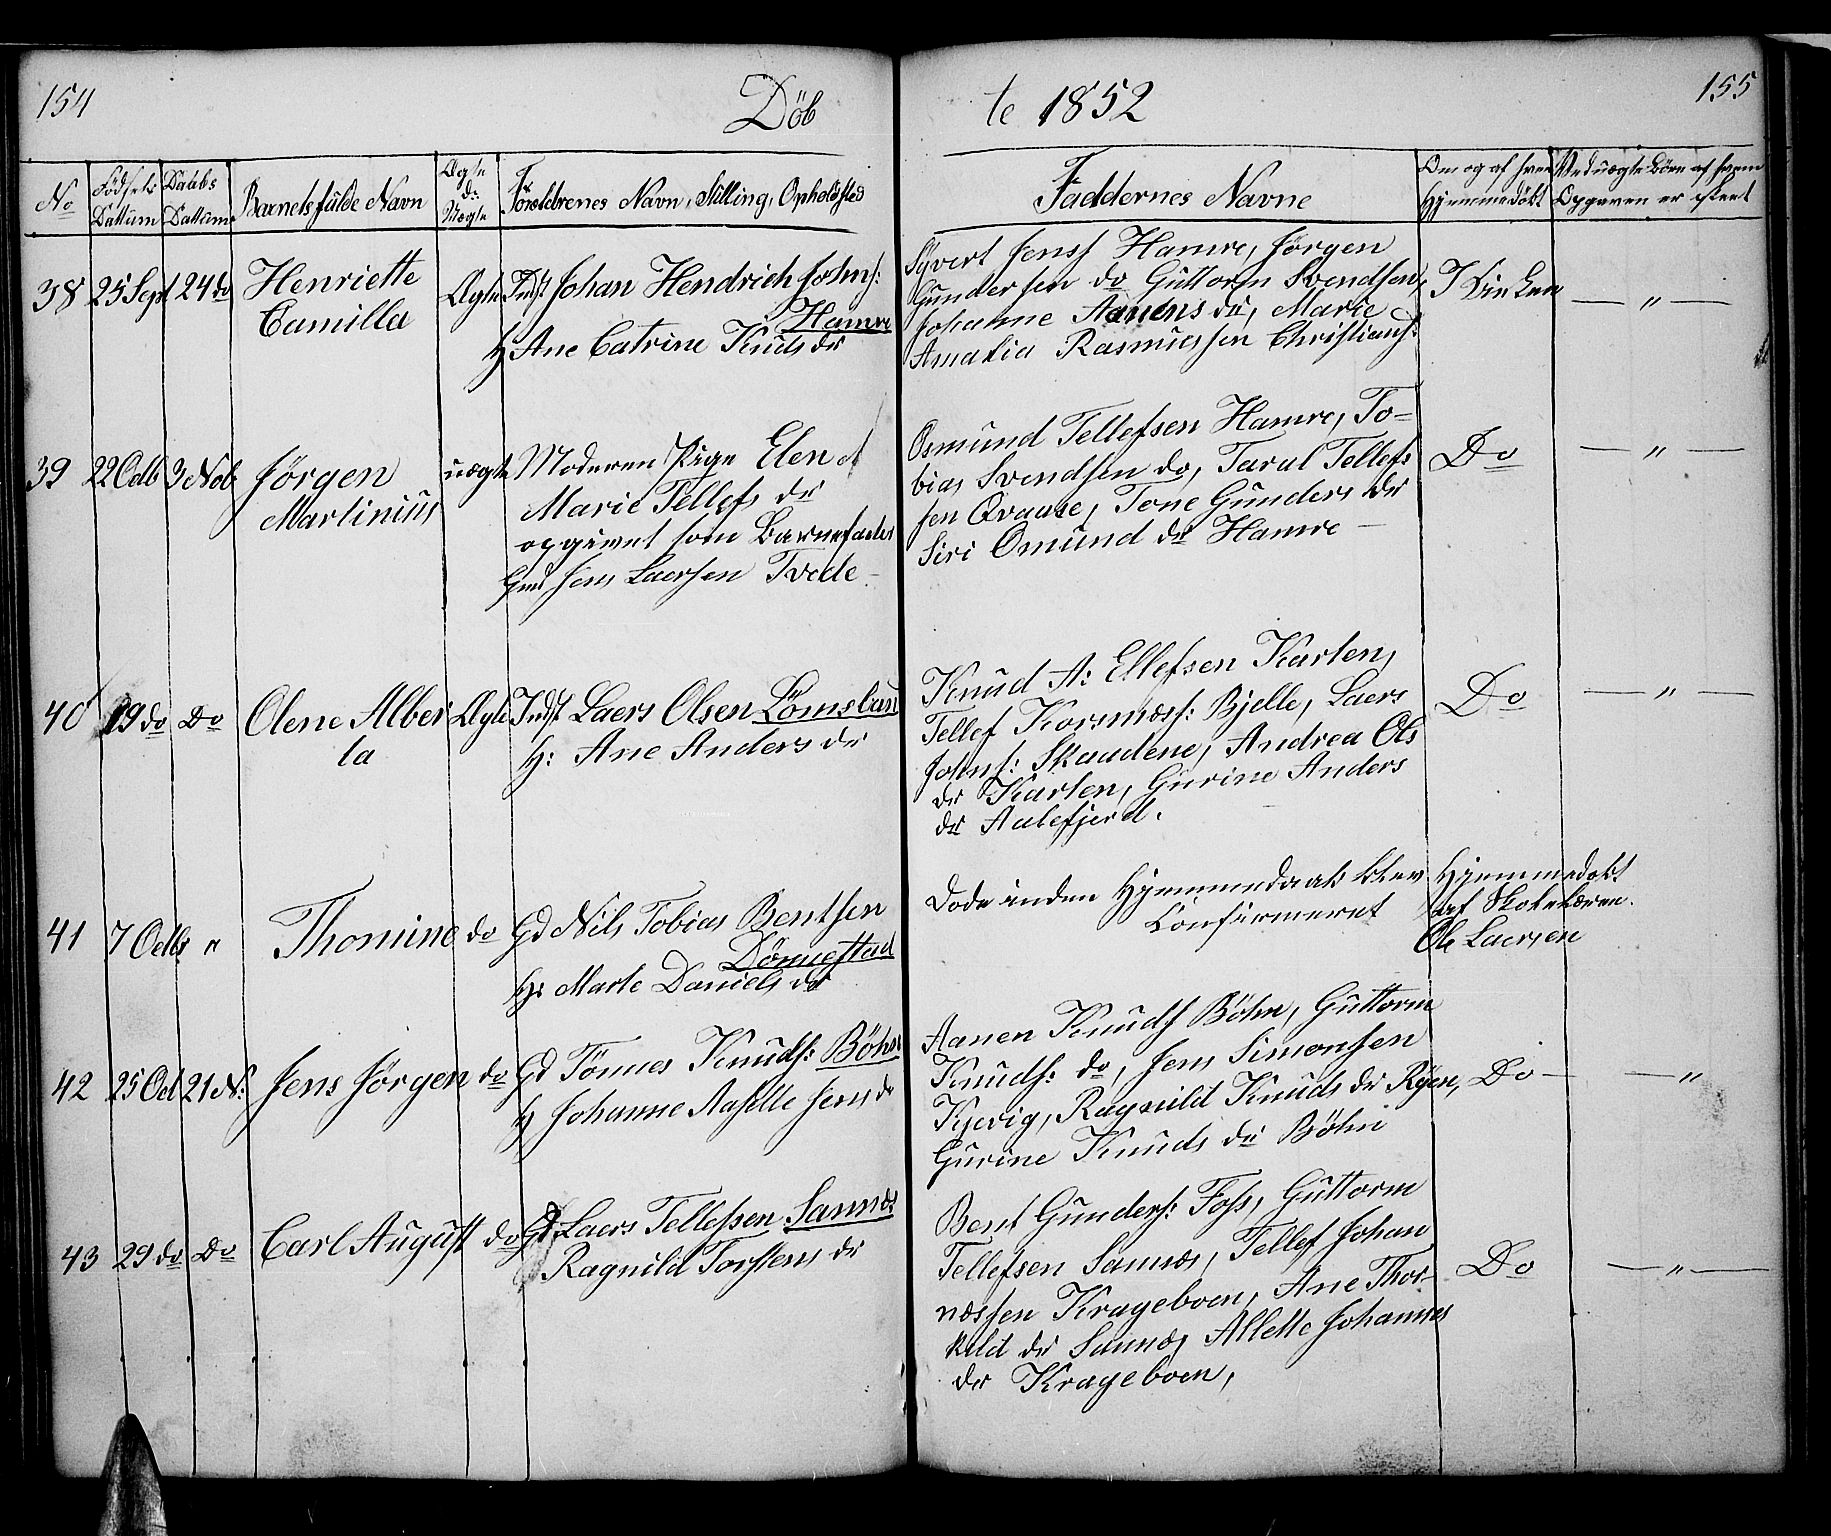 154
Döb
te 1852
155
No
Födsels Dattum
Daabs Dattum
Barnets fulde Navn
Ægte do Uægte
Foreldrenes Navn, Stilling, Opholdsted
Faddernes Navne
Om og af hvem Hjemmedøbt
Ved uægte Børn af hvem Opgaven er skeet
38 25 Sept 24 do
Henriette
Camilla
Ægte
Indst Johan Hendrich Johns:
Hamre
H Ane Catrine Knuds dr
Syvert Jenss Hamre, Jørgen
Gundersen do Guttorm Svendsen,
Johanne Aanens dr, Marie
Amalia Rasmussen Christians:
I Kirken
— " —
39 22 Octb 3 Nob
Jørgen
Martinius
uægte
Moderen Pige Elen
Marie Tellefs dr
opgivet som Barnefader
Gmd Jens Laersen Tvede
Osmund Tellefsen Hamre, To-
bias Svendsen do, Taral Tellefs
sen Qvaase, Tone Gunders dr
Siri Omund dr Hamre —
Do
— " —
40 19 do Do
Olene Alber
ta
Ægte
Indst Laers Olsen Lömslan
H: Ane Anders dr
Knud A: Ellefsen Karten,
Tellef Korsmæss: Bjelle, Laers
Johns: Skaadene, Andrea Ols
dr Karten, Gurine Anders
dr Aalefjerd.
Do
— " —
41 7 Octb "
Thomine
do
Gd Nils Tobias Bentsen
Dönnestad
H: Marte Daniels dr
Døde inden Hjemmedaab blev
Confirmeret
Hjemmedøbt
af Skolelæren.
Ole Laersen
42 25 Oct 21 N:
Jens Jörgen
do
Gd Tönnes Knuds: Böhn
H Johanne Aaselle Jens dr
Aanen Knuds Böhn, Guttorm
Knuds: do, Jens Simonsen
Kjevig, Ragnild Knuds dr Ryen,
Gurine Knuds dr Böhn
Do —
— "
43 29 do Do
Carl August
do
Gd Laers Tellefsen Sannes
Ragnild Torstens dr
Bent Gunders: Foss, Guttorm
Tellefsen Sannes, Tellef Johan
næssen Krageboen, Ane Thor-
kild dr Sannes, Allette Johannes
dr Krageboen,
Do
— " —